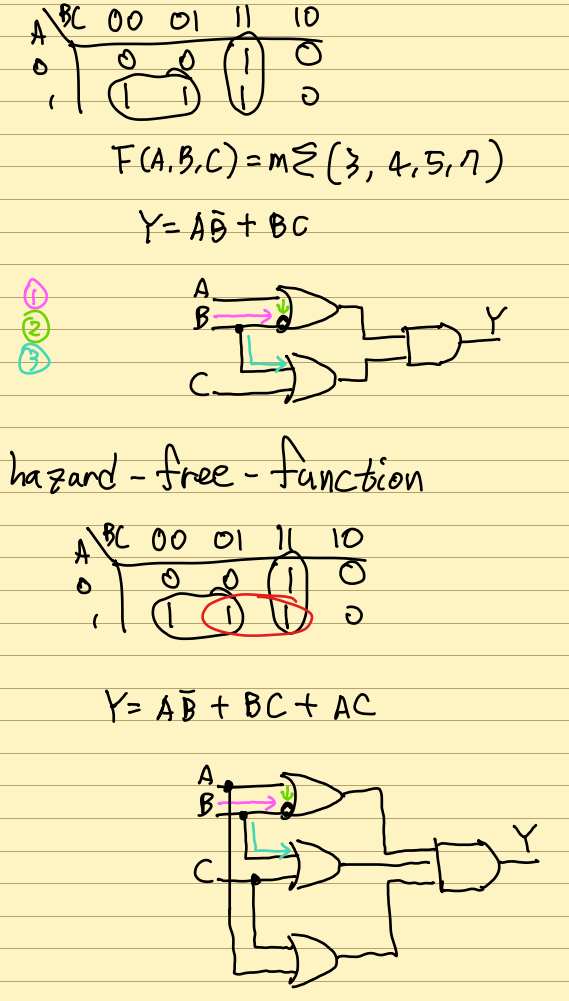 A BC 00 01 11 10
0 0 0 1 0
1 1 1 1 0
F(A,B,C)=m∑(3,4,5,7)
Y=AB̄+BC
①
②
③
A
B
C
Y
hazard-free-function
A BC 00 01 11 10
0 0 0 1 0
1 1 1 1 0
Y=AB̄+BC+AC
A
B
C
Y